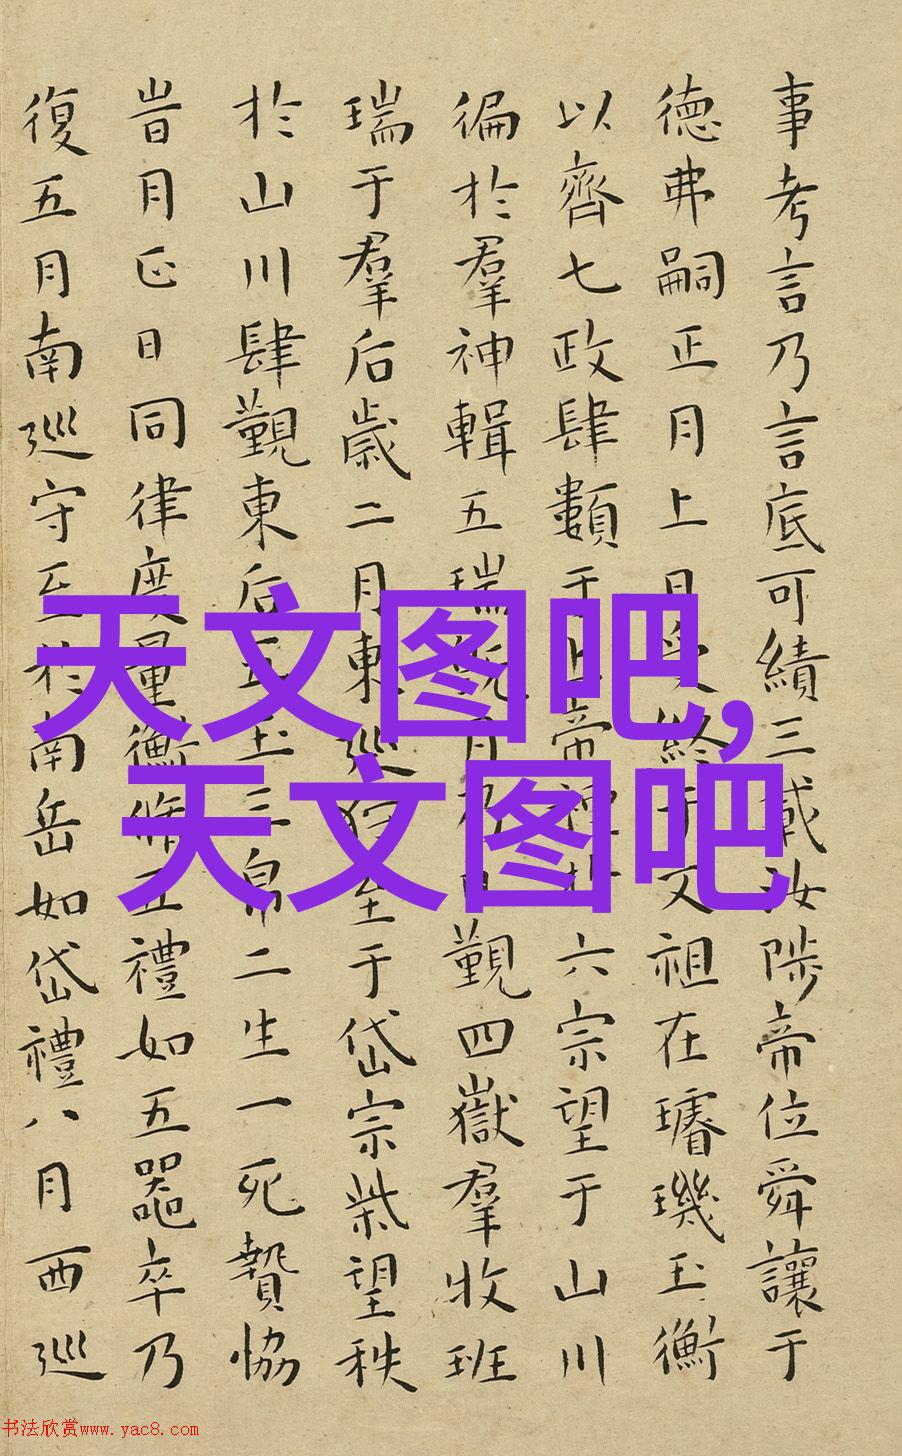 事考言乃言底可績三載汝陟帝位舜讓于
德弗嗣正月上日受終于文祖在璿璣玉衡
以齊七政肆類于上帝禋於六宗望于山川
徧於羣神輯五瑞旣月乃日覲四嶽羣牧班
瑞于羣后歲二月東巡狩至于岱宗柴望秩
於山川肆覲東后五玉三帛二生一死贄協
旹月正日同律度量衡脩五禮如五器卒乃
復五月南巡守至於南岳如岱禮八月西巡
天文图吧,
天文图吧
书法欣赏www.yac8.com